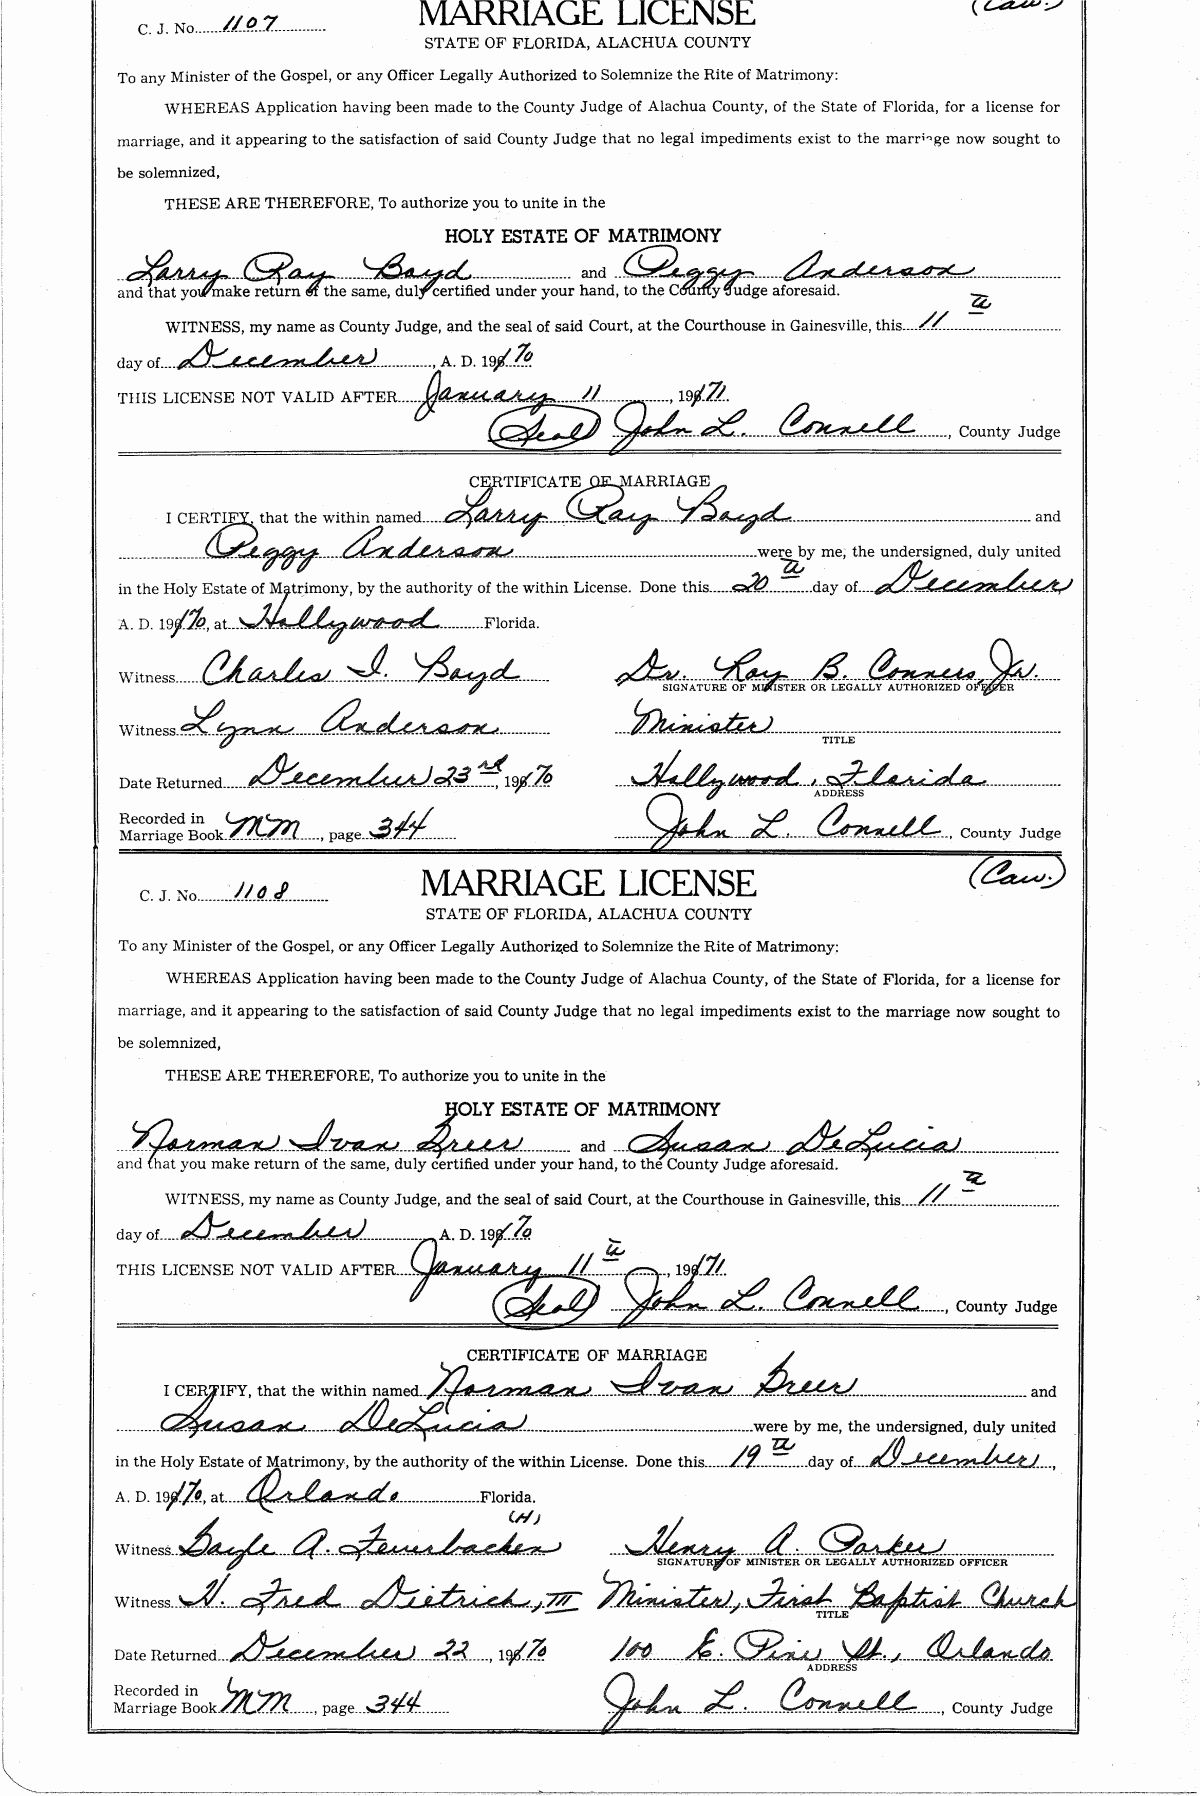 C. J. No. 1107 MARRIAGE LICENSE (Caw.)
STATE OF FLORIDA, ALACHUA COUNTY
To any Minister of the Gospel, or any Officer Legally Authorized to Solemnize the Rite of Matrimony:
WHEREAS Application having been made to the County Judge of Alachua County, of the State of Florida, for a license for
marriage, and it appearing to the satisfaction of said County Judge that no legal impediments exist to the marriage now sought to
be solemnized,
THESE ARE THEREFORE, To authorize you to unite in the
HOLY ESTATE OF MATRIMONY
Larry Ray Boyd and Peggy Anderson
and that you make return of the same, duly certified under your hand, to the County Judge aforesaid.
WITNESS, my name as County Judge, and the seal of said Court, at the Courthouse in Gainesville, this 11th
day of December, A. D. 1970
THIS LICENSE NOT VALID AFTER January 11, 1971
(Seal) John L. Connell, County Judge
CERTIFICATE OF MARRIAGE
I CERTIFY, that the within named Larry Ray Boyd and
Peggy Anderson were by me, the undersigned, duly united
in the Holy Estate of Matrimony, by the authority of the within License. Done this 20th day of December
A. D. 1970, at Hollywood Florida.
Witness Charles I. Boyd Dr. Ray B. Conners, Jr.
SIGNATURE OF MINISTER OR LEGALLY AUTHORIZED OFFICER
Witness Lynn Anderson Minister
TITLE
Date Returned December 23rd, 1970 Hollywood, Florida
ADDRESS
Recorded in
Marriage Book MM, page 344 John L. Connell, County Judge
C. J. No. 1108 MARRIAGE LICENSE (Caw.)
STATE OF FLORIDA, ALACHUA COUNTY
To any Minister of the Gospel, or any Officer Legally Authorized to Solemnize the Rite of Matrimony:
WHEREAS Application having been made to the County Judge of Alachua County, of the State of Florida, for a license for
marriage, and it appearing to the satisfaction of said County Judge that no legal impediments exist to the marriage now sought to
be solemnized,
THESE ARE THEREFORE, To authorize you to unite in the
HOLY ESTATE OF MATRIMONY
Norman Ivan Greer and Susan DeLucia
and that you make return of the same, duly certified under your hand, to the County Judge aforesaid.
WITNESS, my name as County Judge, and the seal of said Court, at the Courthouse in Gainesville, this 11th
day of December A. D. 1970
THIS LICENSE NOT VALID AFTER January 11th, 1971
(Seal) John L. Connell, County Judge
CERTIFICATE OF MARRIAGE
I CERTIFY, that the within named Norman Ivan Greer and
Susan DeLucia were by me, the undersigned, duly united
in the Holy Estate of Matrimony, by the authority of the within License. Done this 19th day of December,
A. D. 1970, at Orlando Florida.
(H)
Witness Gayle A. Feuerbacken Henry A. Parker
SIGNATURE OF MINISTER OR LEGALLY AUTHORIZED OFFICER
Witness H. Fred Dietrich, III Minister, First Baptist Church
TITLE
Date Returned December 22, 1970 100 E. Pine St., Orlando
ADDRESS
Recorded in
Marriage Book MM, page 344 John L. Connell, County Judge